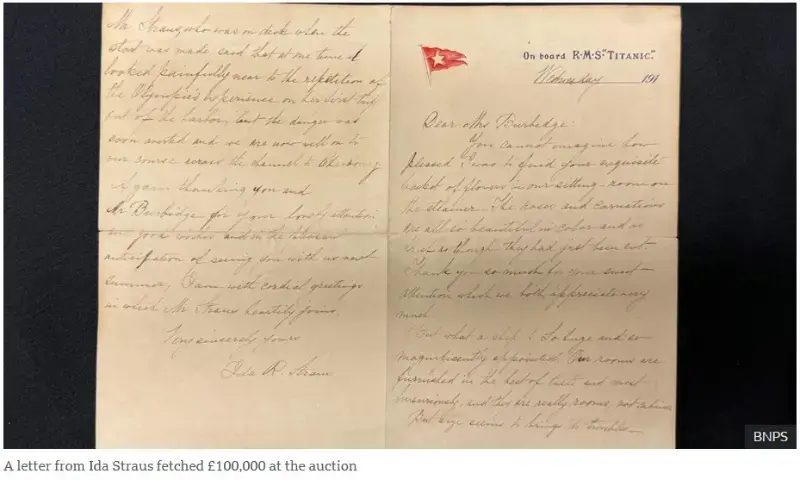 On board R·M·S "TITANIC".
Wednesday 191
Dear Mrs Burbidge:
You cannot imagine how
pleased I was to find your exquisite
basket of flowers in our sitting-room on
the steamer. The roses and carnations
are all so beautiful in color and as
fresh as though they had just been cut.
Thank you so much for your sweet
attention which we both appreciate very
much.
But what a ship! So huge and so
magnificently appointed. Our rooms are
furnished in the best of taste and most
luxuriously and they are really rooms, not cabins.
But size seems to bring its troubles—
Mr Straus, who was on deck when the
start was made, said that at one time it
looked painfully near to the repetition of
the Olympic's experience on her first trip
out of the harbor, but the danger was
soon averted and we are now well on to
our course across the channel to Cherbourg
Again thanking you and
Mr Burbidge for your lovely attention
and good wishes and in the pleasant
anticipation of seeing you with us next
summer, I am with cordial greetings
in which Mr Straus heartily joins,
Very sincerely yours
Ida R. Straus
BNPS
A letter from Ida Straus fetched £100,000 at the auction